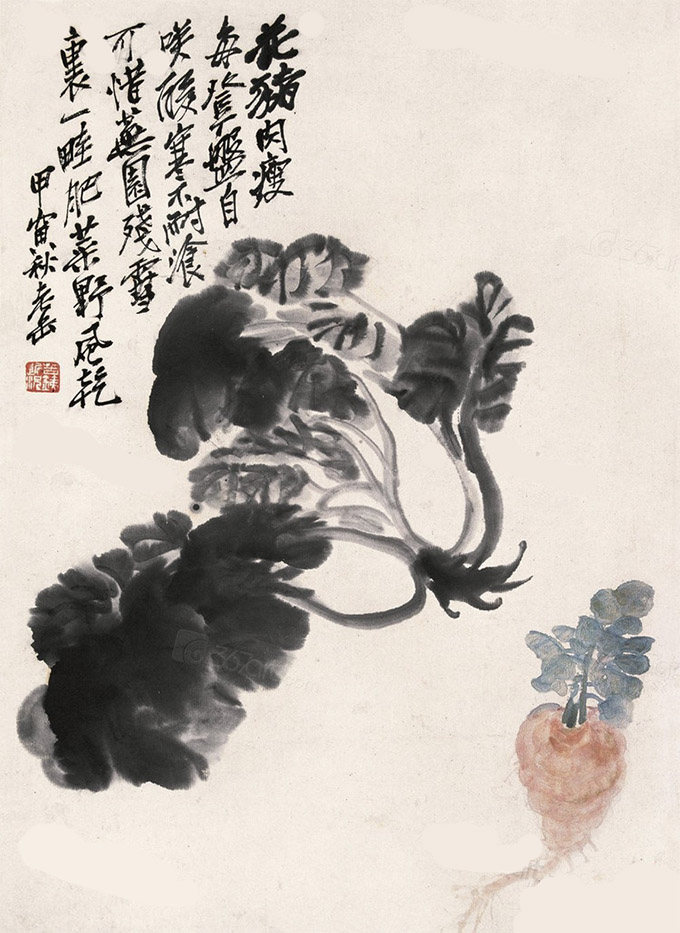 花豬肉瘦
每登盤自
咲酸寒不耐湌
可惜蕪園殘雪
裏一畦肥菜野風乾
甲寅秋老缶